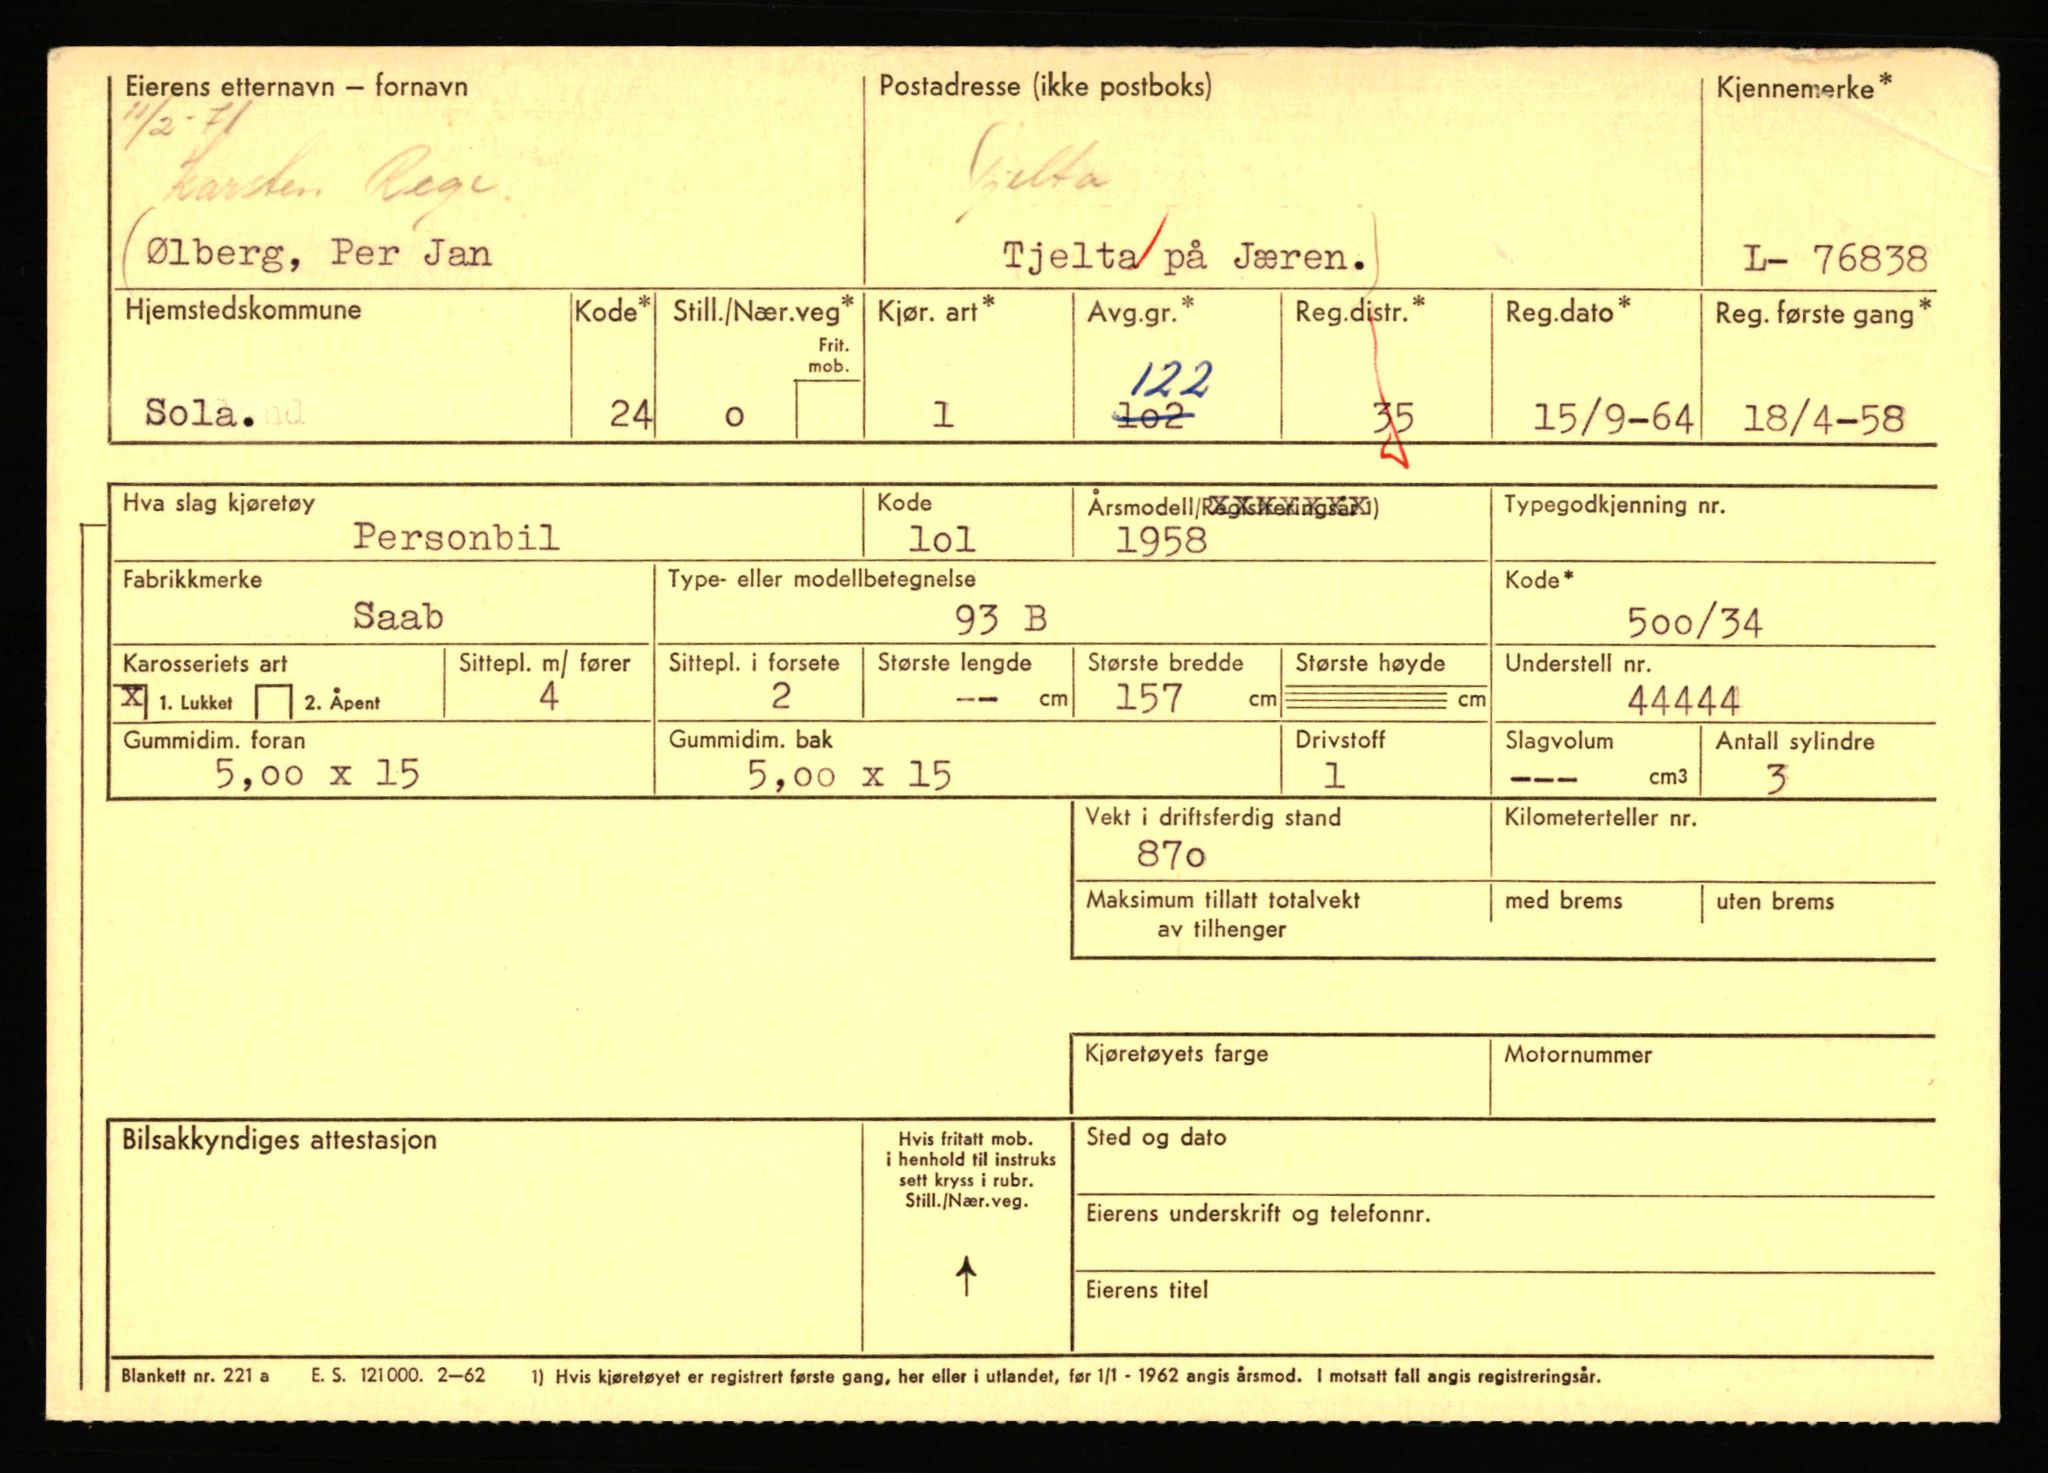 Eierens etternavn – fornavn
Postadresse (ikke postboks)
Kjennemerke*
11/2-71
Karsten Rege.
Tjelta
Ølberg, Per Jan
Tjelta på Jæren.
L- 76838
Hjemstedskommune
Kode*
Still./Nær.veg*
Kjør. art*
Avg.gr.*
Reg.distr.*
Reg.dato*
Reg. første gang*
Frit.
mob.
122
Sola.
24
o
1
lo2
35
15/9-64
18/4-58
Hva slag kjøretøy
Kode
Årsmodell/Registreringsår 1)
Typegodkjenning nr.
Personbil
lol
1958
Fabrikkmerke
Type- eller modellbetegnelse
Kode*
Saab
93 B
5oo/34
Karosseriets art
Sittepl. m/ fører
Sittepl. i forsete
Største lengde
Største bredde
Største høyde
Understell nr.
X 1. Lukket
2. Åpent
4
2
-- cm
157 cm
cm
44444
Gummidim. foran
Gummidim. bak
Drivstoff
Slagvolum
Antall sylindre
5,oo x 15
5,oo x 15
1
--- cm3
3
Vekt i driftsferdig stand
Kilometerteller nr.
87o
Maksimum tillatt totalvekt
av tilhenger
med brems
uten brems
Kjøretøyets farge
Motornummer
Bilsakkyndiges attestasjon
Hvis fritatt mob.
i henhold til instruks
sett kryss i rubr.
Still./Nær.veg.
Sted og dato
Eierens underskrift og telefonnr.
Eierens titel
Blankett nr. 221 a E. S. 121000. 2–62 1) Hvis kjøretøyet er registrert første gang, her eller i utlandet, før 1/1 - 1962 angis årsmod. I motsatt fall angis registreringsår.